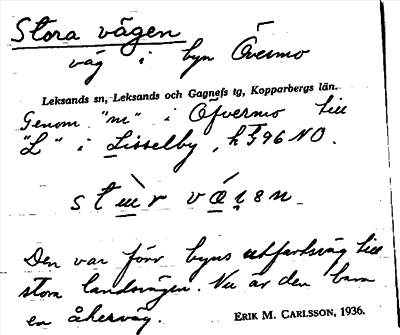 Stora vägen
väg i byn Övermo
Leksands sn, Leksands och Gagnefs tg, Kopparbergs län.
Genom "m" i Öfvermo till
"L" i Lisselby, h596NO.
Den var förr byns utfartsväg till
stora landsvägen. Nu är den bara
en åkerväg.
ERIK M. CARLSSON, 1936.